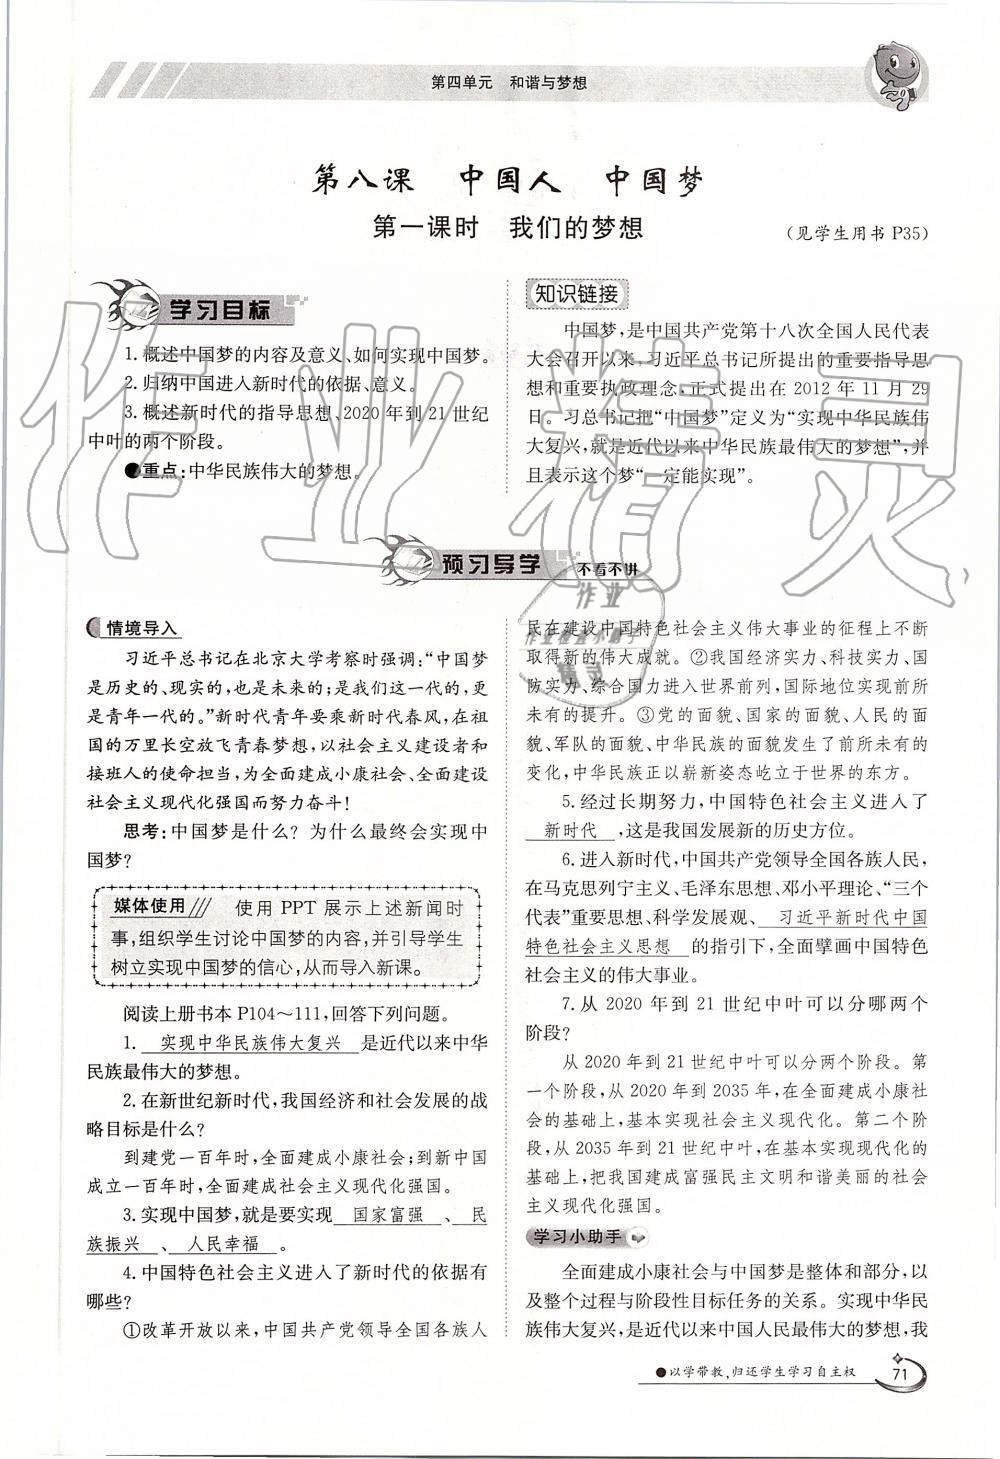 第四单元　和谐与梦想
第八课　中国人　中国梦
第一课时　我们的梦想
（见学生用书 P35）
学习目标
1. 概述中国梦的内容及意义、如何实现中国梦。
2. 归纳中国进入新时代的依据、意义。
3. 概述新时代的指导思想、2020 年到 21 世纪
中叶的两个阶段。
●重点:中华民族伟大的梦想。
知识链接
中国梦,是中国共产党第十八次全国人民代表
大会召开以来,习近平总书记所提出的重要指导思
想和重要执政理念,正式提出在 2012 年 11 月 29
日。习总书记把“中国梦”定义为“实现中华民族伟
大复兴,就是近代以来中华民族最伟大的梦想”,并
且表示这个梦“一定能实现”。
预习导学　不看不讲
情境导入
习近平总书记在北京大学考察时强调:“中国梦
是历史的、现实的,也是未来的;是我们这一代的,更
是青年一代的。”新时代青年要乘新时代春风,在祖
国的万里长空放飞青春梦想,以社会主义建设者和
接班人的使命担当,为全面建成小康社会、全面建设
社会主义现代化强国而努力奋斗!
思考:中国梦是什么? 为什么最终会实现中
国梦?
媒体使用　使用 PPT 展示上述新闻时
事,组织学生讨论中国梦的内容,并引导学生
树立实现中国梦的信心,从而导入新课。
阅读上册书本 P104～111,回答下列问题。
1. 实现中华民族伟大复兴 是近代以来中华
民族最伟大的梦想。
2. 在新世纪新时代,我国经济和社会发展的战
略目标是什么?
到建党一百年时,全面建成小康社会;到新中国
成立一百年时,全面建成社会主义现代化强国。
3. 实现中国梦,就是要实现 国家富强 、 民
族振兴 、 人民幸福 。
4. 中国特色社会主义进入了新时代的依据有
哪些?
①改革开放以来,中国共产党领导全国各族人
民在建设中国特色社会主义伟大事业的征程上不断
取得新的伟大成就。②我国经济实力、科技实力、国
防实力、综合国力进入世界前列,国际地位实现前所
未有的提升。③党的面貌、国家的面貌、人民的面
貌、军队的面貌、中华民族的面貌发生了前所未有的
变化,中华民族正以崭新姿态屹立于世界的东方。
5. 经过长期努力,中国特色社会主义进入了
新时代 ,这是我国发展新的历史方位。
6. 进入新时代,中国共产党领导全国各族人民,
在马克思列宁主义、毛泽东思想、邓小平理论、“三个
代表”重要思想、科学发展观、 习近平新时代中国
特色社会主义思想 的指引下,全面擘画中国特色
社会主义的伟大事业。
7. 从 2020 年到 21 世纪中叶可以分哪两个
阶段?
从 2020 年到 21 世纪中叶可以分两个阶段。第
一个阶段,从 2020 年到 2035 年,在全面建成小康社
会的基础上,基本实现社会主义现代化。第二个阶
段,从 2035 年到 21 世纪中叶,在基本实现现代化的
基础上,把我国建成富强民主文明和谐美丽的社会
主义现代化强国。
学习小助手
全面建成小康社会与中国梦是整体和部分,以
及整个过程与阶段性目标任务的关系。实现中华民
族伟大复兴,是近代以来中国人民最伟大的梦想,我
●以学带教,归还学生学习自主权
71
作业精灵
作业
作业检查小助手
精灵